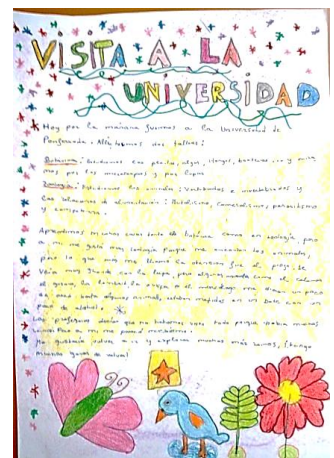 VISITA A LA
UNIVERSIDAD
Hoy por la mañana fuimos a la Universidad de
Ponferrada. Allí hicimos dos talleres:
Botánica: Estudiamos las plantas, algas, hongos, bacterias y
por los microscopios y por lupas
Zoología: Estudiamos los animales: Vertebrados e invertebrados y
las relaciones de alimentación: Mutualismo, comensalismo, parasitismo
y
Aprendimos muchas cosas tanto de botánica como en zoología, pero
a mí me gustó más zoología porque me encantan los animales,
pero lo que más me llamó la atención fue el piojo. Se
veía muy grande con la lupa, pero algunos
el gusano, la lombriz, la oruga o el murciélago me dieron un poco
de asco. Había algunos animales, estaban metidos en un bote con un
poco de alcohol.
Los profesores decían que no habíamos visto todo porque
Pero a mí me pareció
Me gustaría volver a ir y explorar muchas más cosas, ¡tengo
muchas ganas de volver!